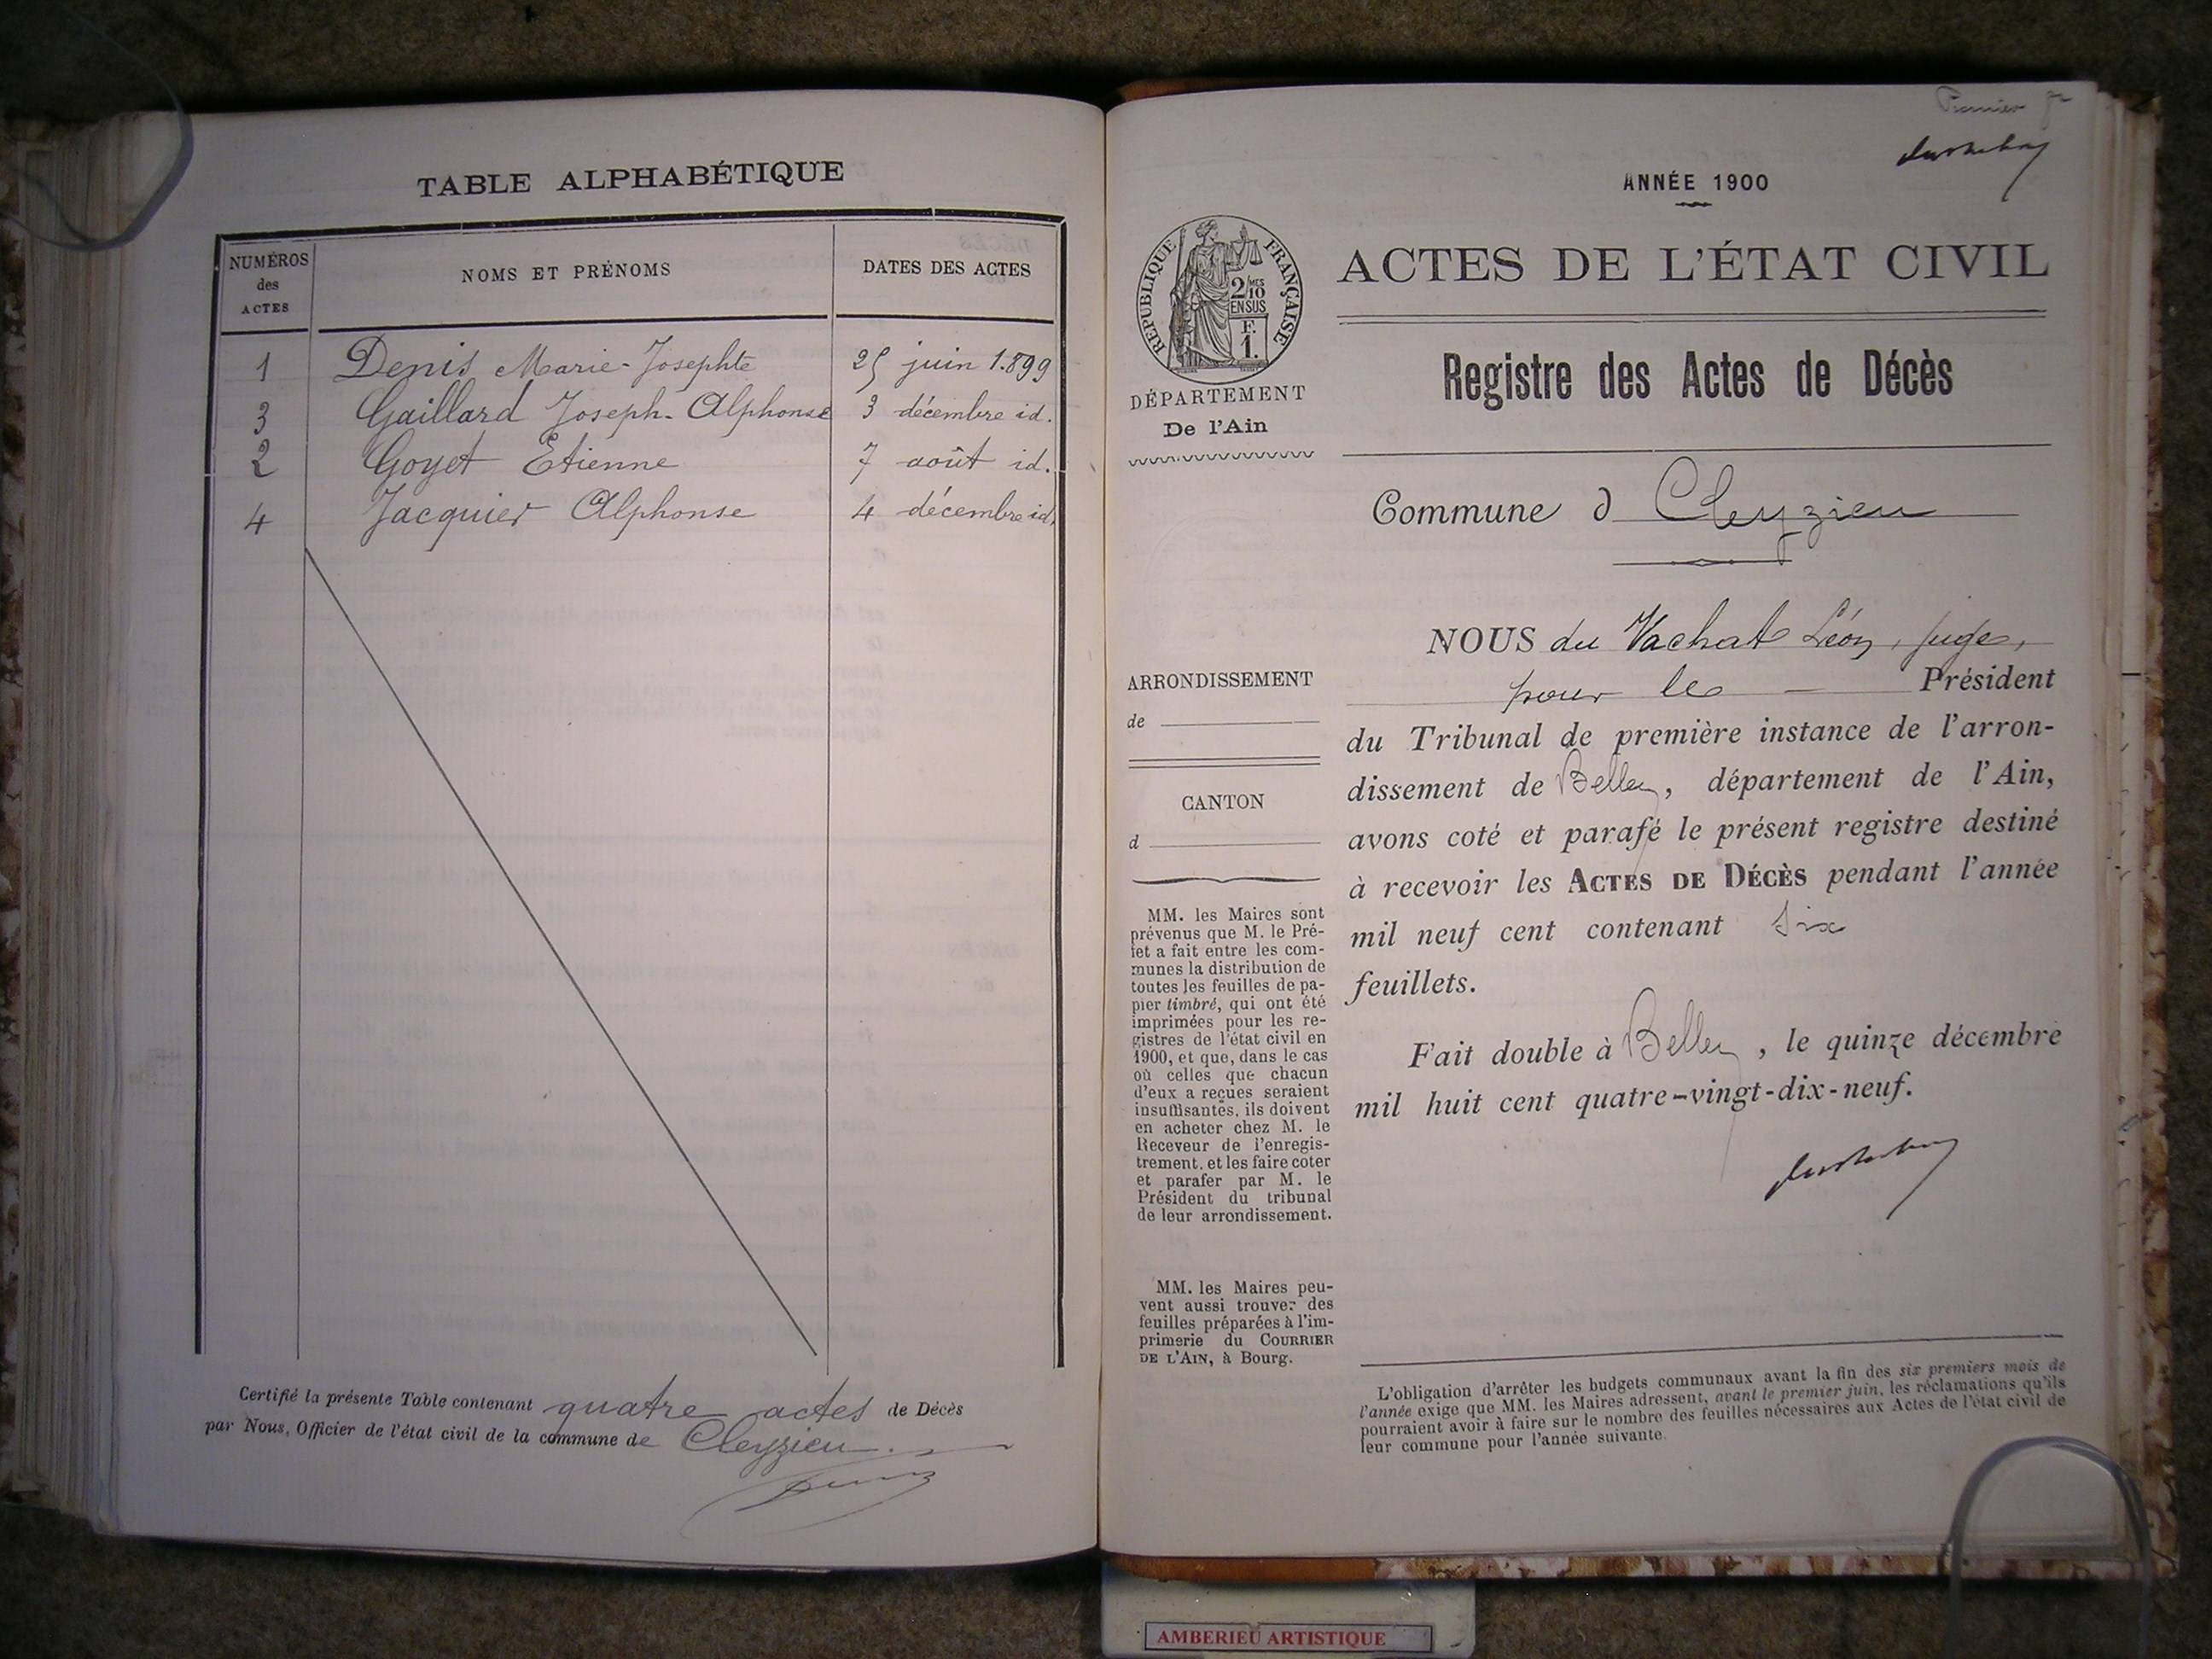 TABLE ALPHABÉTIQUE
NUMÉROS des ACTES
NOMS ET PRÉNOMS
DATES DES ACTES
1 Denis Marie-Josephte 25 juin 1.899
3 Gaillard Joseph-Alphonse 3 décembre id.
2 Goyet Etienne 7 août id.
4 Jacquier Alphonse 4 décembre id.
Certifié la présente Table contenant quatre actes de Décès
par Nous, Officier de l'état civil de la commune de Cleyzieu.
Premier
ANNÉE 1900
RÉPUBLIQUE FRANÇAISE
2/10MES
EN SUS
F.
1.
DÉPARTEMENT
De l'Ain
ACTES DE L'ÉTAT CIVIL
Registre des Actes de Décès
Commune d Cleyzieu
ARRONDISSEMENT
de
CANTON
d
MM. les Maires sont
prévenus que M. le Pré-
fet a fait entre les com-
munes la distribution de
toutes les feuilles de pa-
pier timbré, qui ont été
imprimées pour les re-
gistres de l'état civil en
1900, et que, dans le cas
où celles que chacun
d'eux a reçues seraient
insuffisantes, ils doivent
en acheter chez M. le
Receveur de l'enregis-
trement, et les faire coter
et parafer par M. le
Président du tribunal
de leur arrondissement.
MM. les Maires peu-
vent aussi trouver des
feuilles préparées à l'im-
primerie du COURRIER
DE L'AIN, à Bourg.
NOUS du Vachat Léon, juge,
pour le Président
du Tribunal de première instance de l'arron-
dissement de Belley, département de l'Ain,
avons coté et parafé le présent registre destiné
à recevoir les ACTES DE DÉCÈS pendant l'année
mil neuf cent contenant six
feuillets.
Fait double à Belley, le quinze décembre
mil huit cent quatre-vingt-dix-neuf.
L'obligation d'arrêter les budgets communaux avant la fin des six premiers mois de
l'année exige que MM. les Maires adressent, avant le premier juin, les réclamations qu'ils
pourraient avoir à faire sur le nombre des feuilles nécessaires aux Actes de l'état civil de
leur commune pour l'année suivante.
AMBERIEU ARTISTIQUE